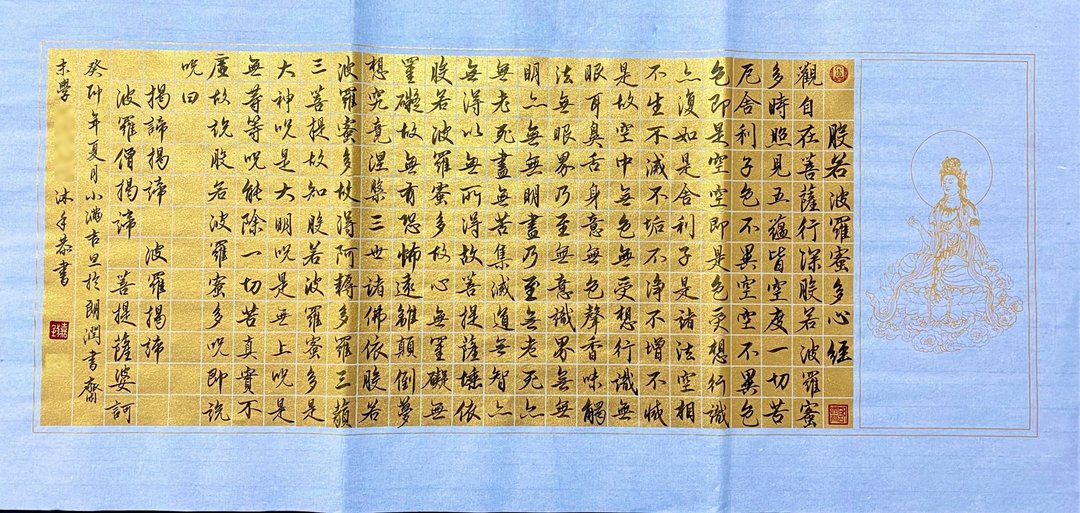 般若波羅蜜多心經
觀自在菩薩行深般若波羅蜜
多時照見五蘊皆空度一切苦
厄舍利子色不異空空不異色
色即是空空即是色受想行識
亦復如是舍利子是諸法空相
不生不滅不垢不淨不增不減
是故空中無色無受想行識無
眼耳鼻舌身意無色聲香味觸
法無眼界乃至無意識界無無
明亦無無明盡乃至無老死亦
無老死盡無苦集滅道無智亦
無得以無所得故菩提薩埵依
般若波羅蜜多故心無罣礙無
罣礙故無有恐怖遠離顛倒夢
想究竟涅槃三世諸佛依般若
波羅蜜多故得阿耨多羅三藐
三菩提故知般若波羅蜜多是
大神呪是大明呪是無上呪是
無等等呪能除一切苦真實不
虛故說般若波羅蜜多呪即說
呪曰
揭諦揭諦 波羅揭諦
波羅僧揭諦 菩提薩婆訶
癸卯年夏月小滿吉旦於朗潤書齋
末學 沐手恭書